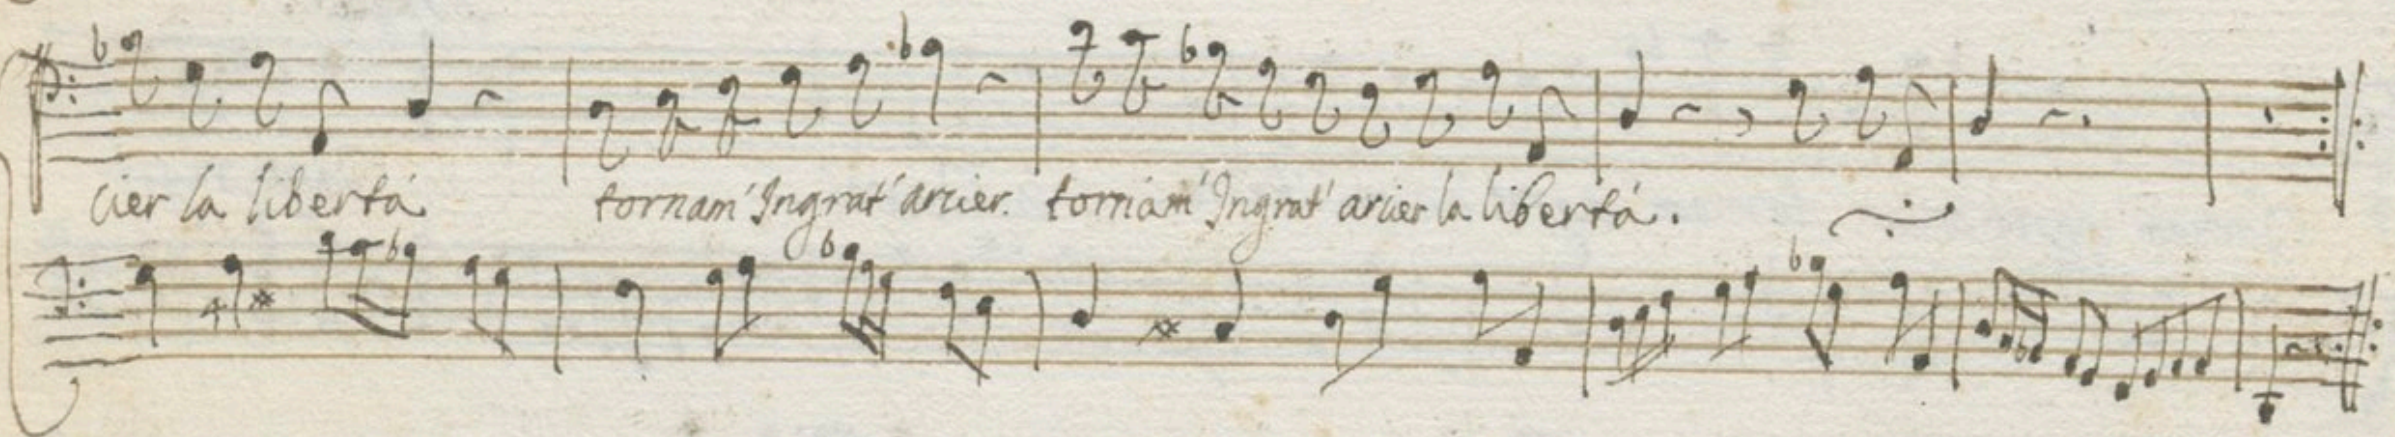 cier la libertá tornam' Ingrat' arcier. tornam' Ingrat' arcier la libertá.